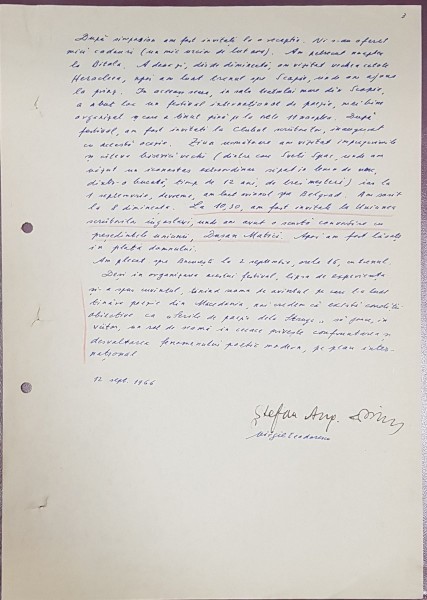 3
După simpozion am fost invitați la o recepție. Ni s-au oferit
mici cadouri (un mic orcio de lut ars). Am petrecut noaptea
la Bitola. A doua zi, dis de dimineață, am vizitat vechea cetate
Heraclea, apoi am luat trenul spre Scopie, unde am ajuns
la prînz. În aceeași seară, în sala teatrului mare din Scopie,
a avut loc un festival internațional de poezie, mai bine
organizat și care a ținut pînă pe la orele 11 noaptea. După
festival, am fost invitați la Clubul scriitorilor, inaugurat
cu această ocazie. Ziua următoare am vizitat împrejurimile
și cîteva biserici vechi (dintre care Sveti Spas, unde am
văzut un iconostas extraordinar săpat în lemn de nuc,
dintr-o bucată, timp de 12 ani, de trei meșteri) iar la
1 septembrie, devreme, am luat avionul spre Belgrad. Am sosit
la 8 dimineața. La 10,30, am fost invitați la Uniunea
scriitorilor iugoslavi, unde am avut o scurtă convorbire cu
președintele uniunii, Dușan Matici. Apoi am fost lăsați
în plata domnului.
Am plecat spre București la 2 septembrie, orele 16, cu trenul.
Deși în organizarea acestui festival, lipsa de experiență
și-a spus cuvîntul, ținînd seama de avîntul pe care l-a luat
tînăra poezie din Macedonia, noi credem că există condiții
obiective ca „Serile de poezie dela Struga" să joace, în
viitor, un rol de seamă în ceeace privește confruntarea și
desvoltarea fenomenului poetic modern, pe plan inter-
național
12 sept. 1966
Ștefan Aug. Doinaș
Virgil Teodorescu